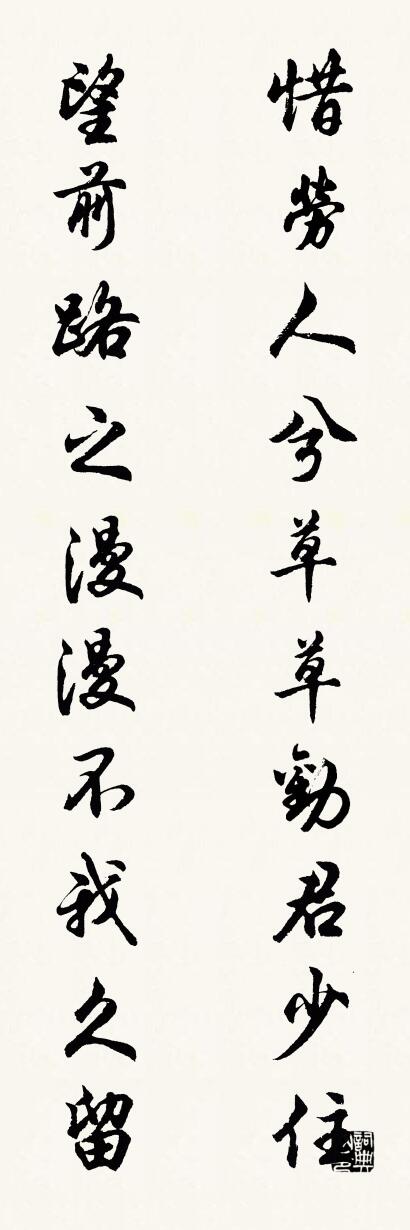 惜勞人兮草草勸君少住
望前路之漫漫不我久留